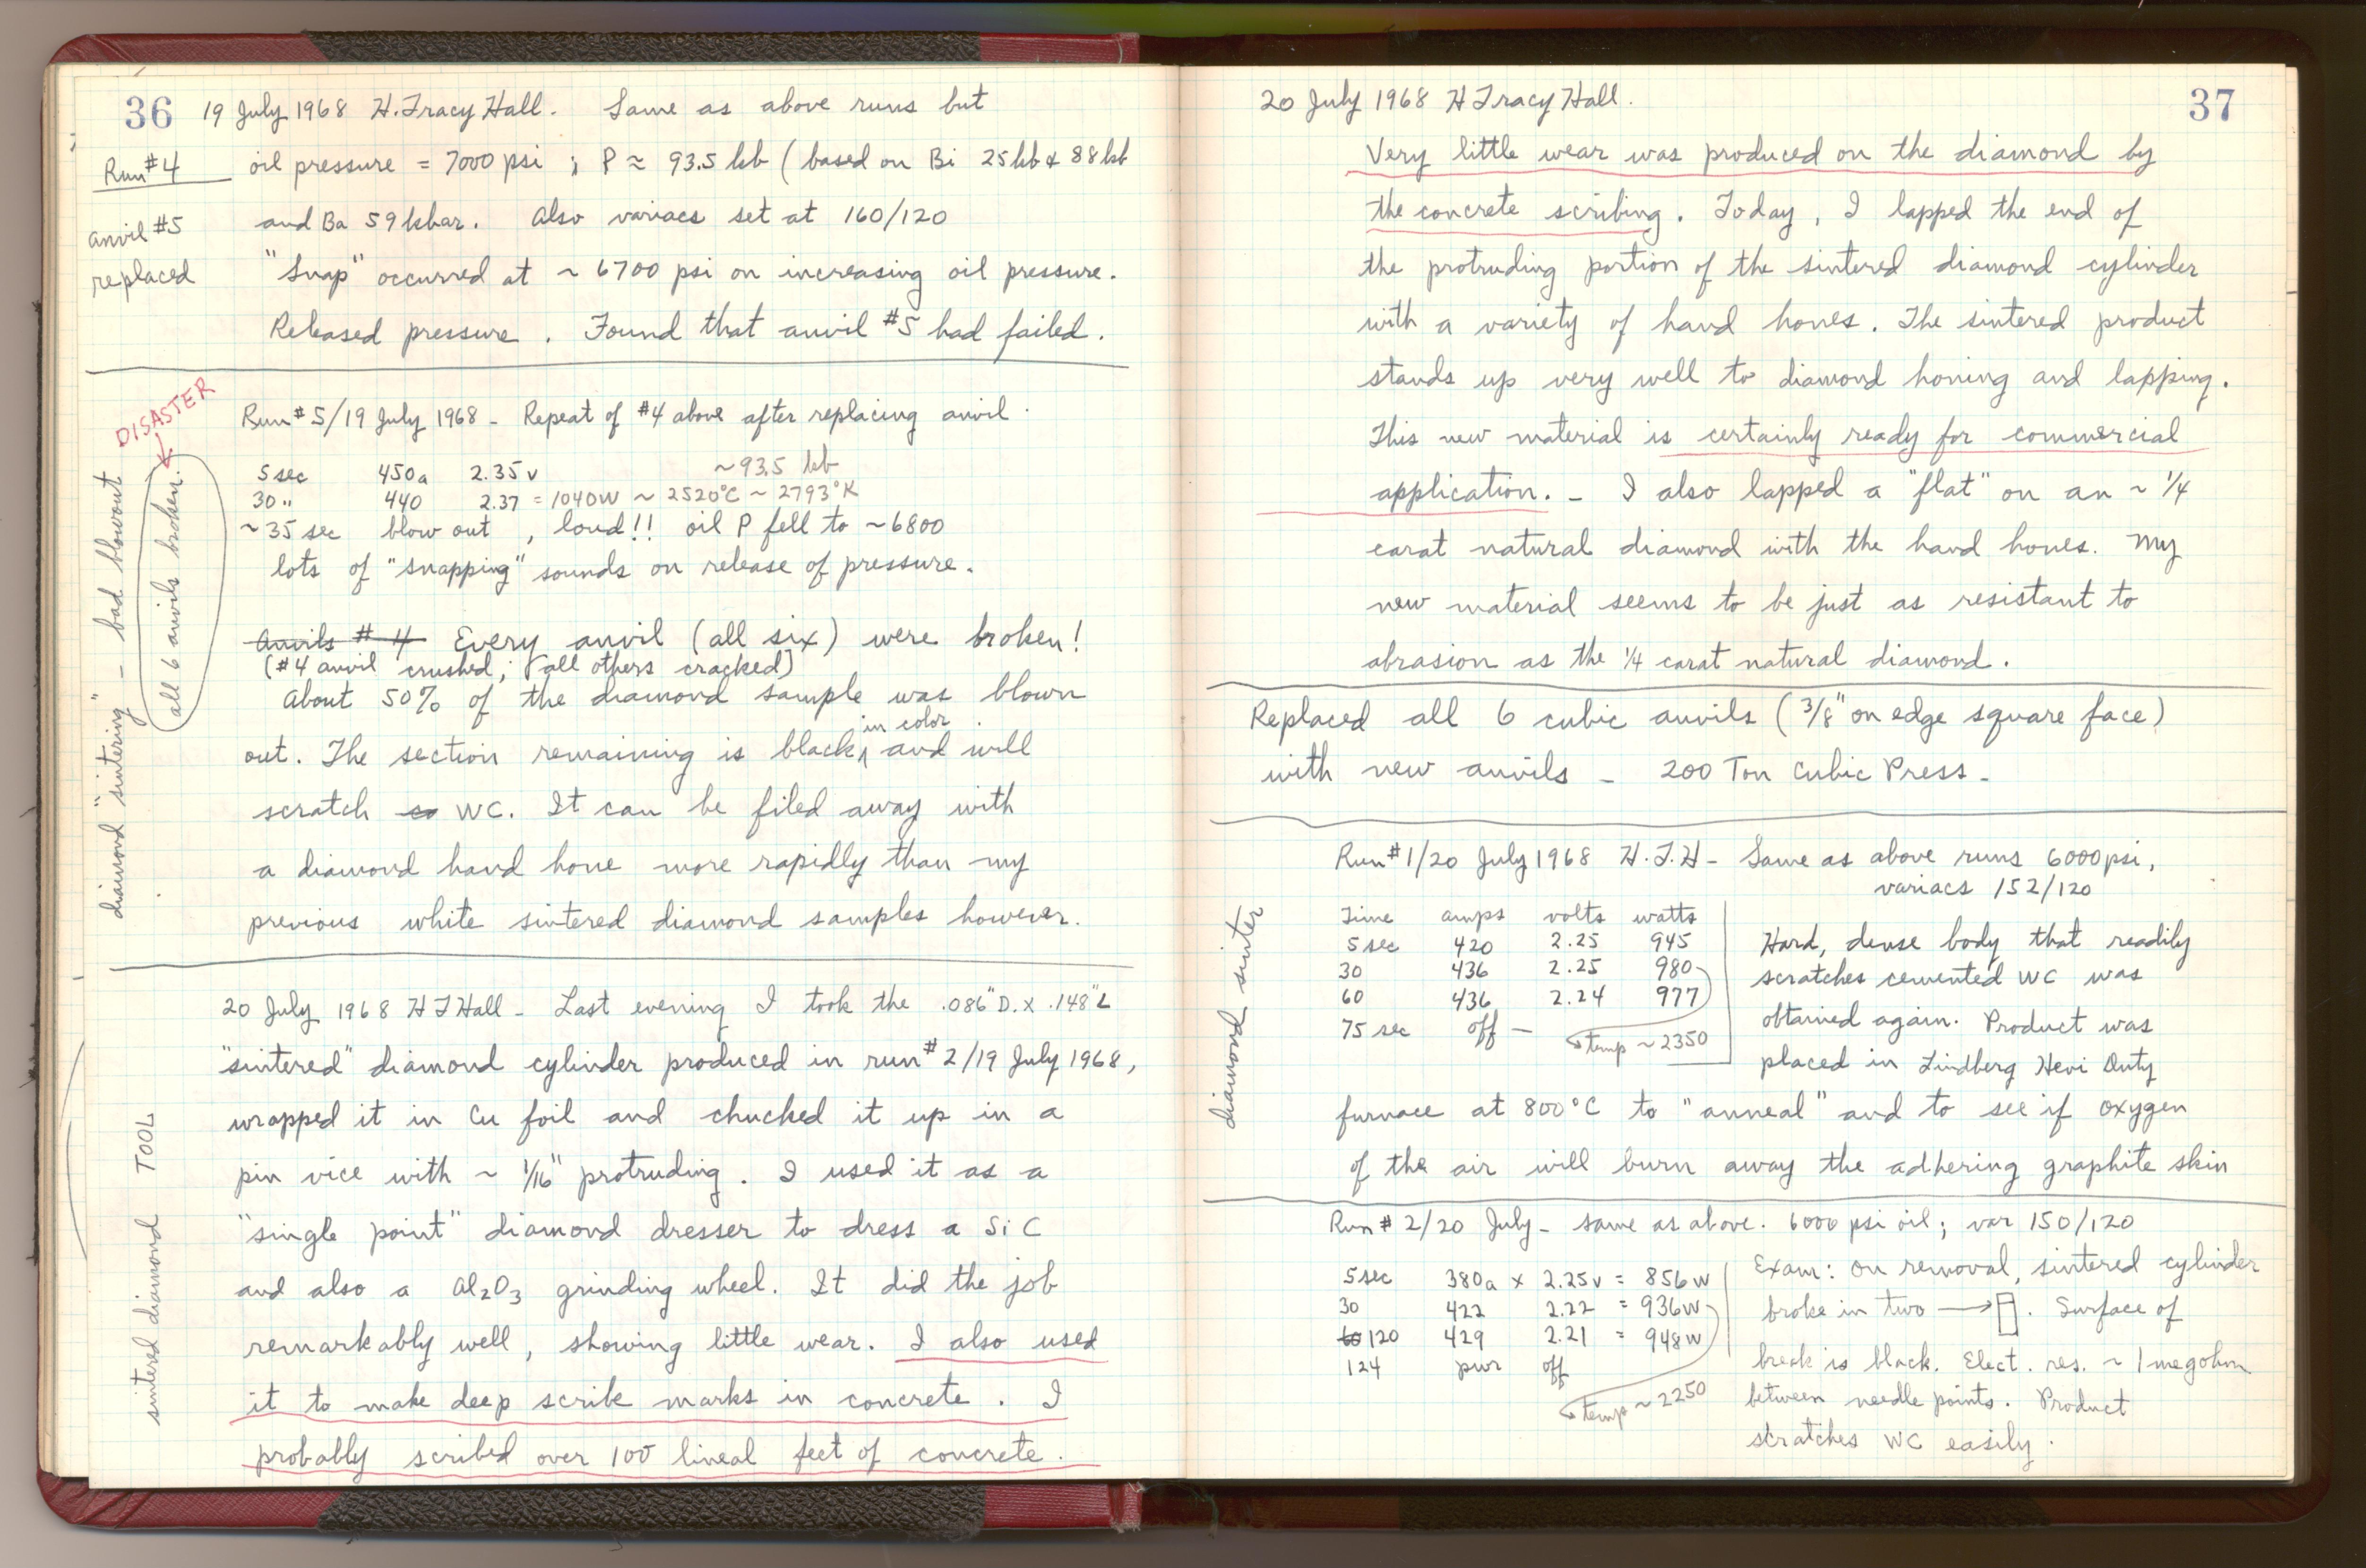 36 19 July 1968 H. Tracy Hall. Same as above runs but
Run #4 oil pressure = 7000 psi ; P ≈ 93.5 kb (based on Bi 25kb & 88kb
anvil #5 and Ba 59 kbar. Also variacs set at 160/120
replaced "Snap" occurred at ~ 6700 psi on increasing oil pressure.
Released pressure. Found that anvil #5 had failed.
DISASTER
all 6 anvils broken.
diamond "sintering" - bad blowout
Run #5/19 July 1968 - Repeat of #4 above after replacing anvil.
5 sec 450a 2.35v ~93.5 kb
30 " 440 2.37 = 1040W ~ 2520°C ~ 2793°K
~35 sec blow out, loud!! oil P fell to ~6800
lots of "snapping" sounds on release of pressure.
Anvils # 4 Every anvil (all six) were broken!
(#4 anvil crushed; all others cracked)
About 50% of the diamond sample was blown
in color
out. The section remaining is black, and will
scratch WC. It can be filed away with
a diamond hand hone more rapidly than my
previous white sintered diamond samples however.
20 July 1968 H T Hall - Last evening I took the .086"D. x .148"L
"sintered" diamond cylinder produced in run #2/19 July 1968,
wrapped it in Cu foil and chucked it up in a
pin vice with ~ 1/16" protruding. I used it as a
"single point" diamond dresser to dress a SiC
and also a Al2O3 grinding wheel. It did the job
remarkably well, showing little wear. I also used
it to make deep scribe marks in concrete. I
probably scribed over 100 lineal feet of concrete.
sintered diamond TOOL
20 July 1968 H Tracy Hall. 37
Very little wear was produced on the diamond by
the concrete scribing. Today, I lapped the end of
the protruding portion of the sintered diamond cylinder
with a variety of hand hones. The sintered product
stands up very well to diamond honing and lapping.
This new material is certainly ready for commercial
application. - I also lapped a "flat" on an ~ 1/4
carat natural diamond with the hand hones. My
new material seems to be just as resistant to
abrasion as the 1/4 carat natural diamond.
Replaced all 6 cubic anvils (3/8" on edge square face)
with new anvils - 200 Ton Cubic Press -
diamond sinter
Run #1/20 July 1968 H.T.H - Same as above runs 6000 psi,
variacs 152/120
Time amps volts watts
5 sec 420 2.25 945
30 436 2.25 980
60 436 2.24 977
75 sec off -
temp ~ 2350
Hard, dense body that readily
scratches cemented WC was
obtained again. Product was
placed in Lindberg Hevi Duty
furnace at 800°C to "anneal" and to see if oxygen
of the air will burn away the adhering graphite skin
Run # 2/20 July - same as above. 6000 psi oil; var 150/120
5 sec 380a x 2.25v = 856w
30 422 2.22 = 936w
120 429 2.21 = 948w
124 pwr off
temp ~ 2250
Exam: On removal, sintered cylinder
broke in two → . Surface of
break is black. Elect. res. ~ 1 megohm
between needle points. Product
scratches WC easily.